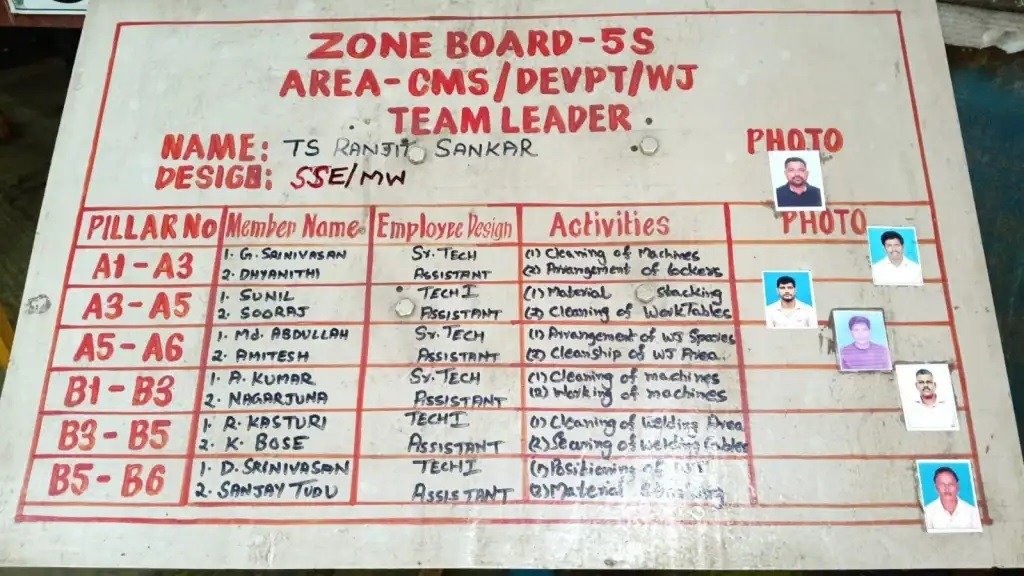 ZONE BOARD-5S
AREA-CMS/DEVPT/WJ
TEAM LEADER
NAME: TS RANJIT SANKAR
PHOTO
DESIGN: SSE/MW
PILLAR NO Member Name Employee Design Activities PHOTO
A1-A3 1. G. SRINIVASAN Sr. TECH (1) Cleaning of Machines
2. DHYANITHI ASSISTANT (2) Arrangement of lockers
A3-A5 1. SUNIL TECH I (1) Material Stacking
2. SOORAJ ASSISTANT (2) Cleaning of Work Tables
A5-A6 1. Md. ABDULLAH Sr. TECH (1) Arrangement of WJ Species
2. AMITESH ASSISTANT (2) Cleanship of WJ Area
B1-B3 1. A. KUMAR Sr. TECH (1) Cleaning of machines
2. NAGARJUNA ASSISTANT (2) Working of machines
B3-B5 1. R. KASTURI TECH I (1) Cleaning of Welding Area
2. K. BOSE ASSISTANT (2) of Welding
B5-B6 1. D. SRINIVASAN TECH I (1) Positioning of
2. SANJAY TUDU ASSISTANT (2) Material